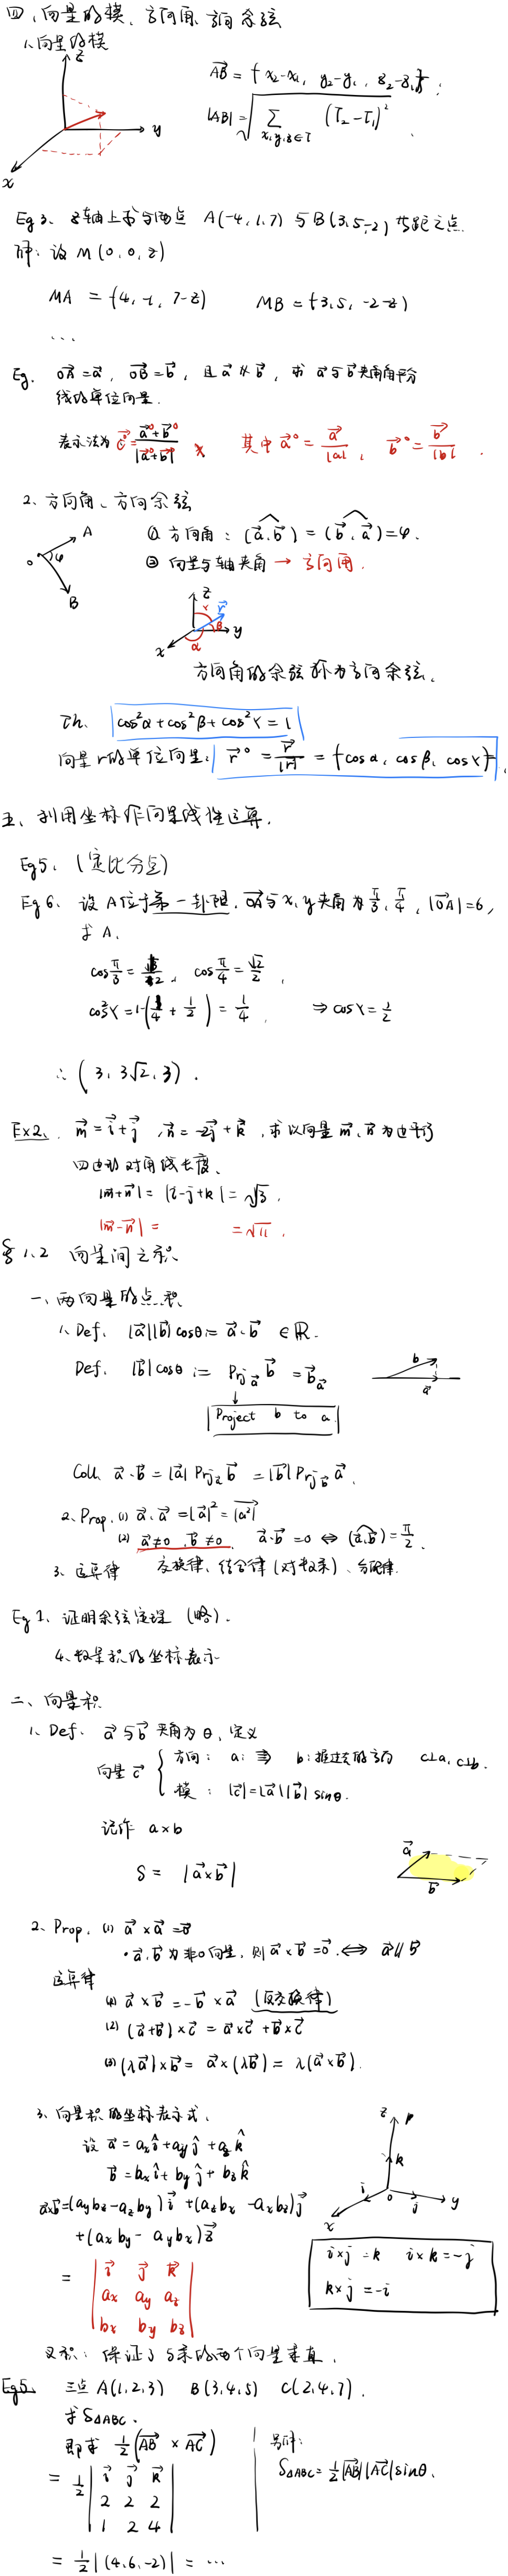 四、向量的模、方向角、方向余弦
1、向量的模
z
y
x
\vec{AB} = { x₂-x₁, y₂-y₁, z₂-z₁ };
|AB| = \sqrt{\sum_{x,y,z∈T} (T₂-T₁)²}.
Eg 3、z轴上求与两点 A(-4,1,7) 与 B(3,5,-2) 等距之点
解: 设 M(0,0,z)
MA = {4,-1,7-z} MB = {3,5,-2-z}
...
Eg. \vec{OA}=\vec{a}, \vec{OB}=\vec{b}, 且 \vec{a} ∦ \vec{b}, 求 \vec{a} 与 \vec{b} 夹角角平分
线的单位向量.
表示法为 \vec{c}°=\frac{\vec{a}°+\vec{b}°}{|\vec{a}°+\vec{b}°|} 其中 \vec{a}°=\frac{\vec{a}}{|a|}, \vec{b}°=\frac{\vec{b}}{|b|}.
2、方向角、方向余弦
O A B φ
① 方向角: (\vec{a},\vec{b}) = (\vec{b},\vec{a}) = φ.
② 向量与轴夹角 → 方向角.
z γ \vec{r} β y x α
方向角的余弦称为方向余弦.
Th. cos²α+cos²β+cos²γ=1
向量r的单位向量: \vec{r}°=\frac{\vec{r}}{|r|} = {cosα, cosβ, cosγ}.
五、利用坐标作向量线性运算.
Eg5、(定比分点)
Eg 6、设 A位于第一卦限, \vec{OA}与 x,y 夹角为 \frac{π}{3}, \frac{π}{4}, |\vec{OA}|=6,
求 A.
cos\frac{π}{3} = \frac{1}{2}, cos\frac{π}{4} = \frac{\sqrt{2}}{2},
cos²γ=1-(\frac{1}{4}+\frac{1}{2}) = \frac{1}{4}, ⇒ cosγ=\frac{1}{2}
∴ (3, 3√2, 3).
Ex2、\vec{m}=\vec{i}+\vec{j}, \vec{n}=-2\vec{j}+\vec{k}, 求以向量 \vec{m},\vec{n} 为边平行
四边形对角线长度.
|\vec{m}+\vec{n}| = |i-j+k| = √3.
|\vec{m}-\vec{n}| = = √11.
§1.2 向量间之积
一、两向量的点积
1、Def. |\vec{a}||\vec{b}|cosθ := \vec{a}·\vec{b} ∈ ℝ.
Def. |\vec{b}|cosθ := Prj_{\vec{a}} \vec{b} = \vec{b}_{\vec{a}}
b a
Project b to a
Coll. \vec{a}·\vec{b} = |\vec{a}| Prj_{\vec{a}} \vec{b} = |\vec{b}| Prj_{\vec{b}} \vec{a}.
2、Prop. (1) \vec{a}·\vec{a} = |\vec{a}|² = |\vec{a²}|
(2) \vec{a}≠0, \vec{b}≠0, \vec{a}·\vec{b}=0 ⇔ (\vec{a},\vec{b})=\frac{π}{2}.
3、运算律 交换律、结合律(对数乘)、分配律.
Eg 1、证明余弦定理 (略).
4、数量积的坐标表示
二、向量积
1、Def. \vec{a} 与 \vec{b} 夹角为 θ, 定义
向量 \vec{c} { 方向: a: b: c⊥a, c⊥b.
模: |\vec{c}|=|\vec{a}||\vec{b}| sinθ.
记作 a×b
S = |\vec{a}×\vec{b}|
\vec{a} \vec{b}
2、Prop. (1) \vec{a}×\vec{a}=\vec{0}
· \vec{a},\vec{b} 为非0向量, 则 \vec{a}×\vec{b}=\vec{0} ⇔ \vec{a}∥\vec{b}
运算律
(1) \vec{a}×\vec{b} = -\vec{b}×\vec{a} (反交换律)
(2) (\vec{a}+\vec{b})×\vec{c} = \vec{a}×\vec{c}+\vec{b}×\vec{c}
(3) (λ\vec{a})×\vec{b} = \vec{a}×(λ\vec{b}) = λ(\vec{a}×\vec{b}).
3、向量积的坐标表示式、
设 \vec{a} = a_x\hat{i}+a_y\hat{j}+a_z\hat{k}
\vec{b} = b_x\hat{i}+b_y\hat{j}+b_z\hat{k}
\vec{a}×\vec{b}=(a_yb_z-a_zb_y)\vec{i}+(a_zb_x-a_xb_z)\vec{j}
+(a_xb_y-a_yb_x)\vec{z}
z k i o j y x
= | \vec{i} \vec{j} \vec{k} |
| a_x a_y a_z |
| b_x b_y b_z |
i×j=k i×k=-j
k×j=-i
叉积: 保证了与乘的两个向量垂直.
Eg5、三点 A(1,2,3) B(3,4,5) C(2,4,7).
求 S△ABC.
即求 \frac{1}{2}(\vec{AB}×\vec{AC})
= \frac{1}{2} | \vec{i} \vec{j} \vec{k} |
| 2 2 2 |
| 1 2 4 |
另解:
S△ABC=\frac{1}{2}|\vec{AB}||\vec{AC}|sinθ.
= \frac{1}{2}|(4,6,-2)| = ...